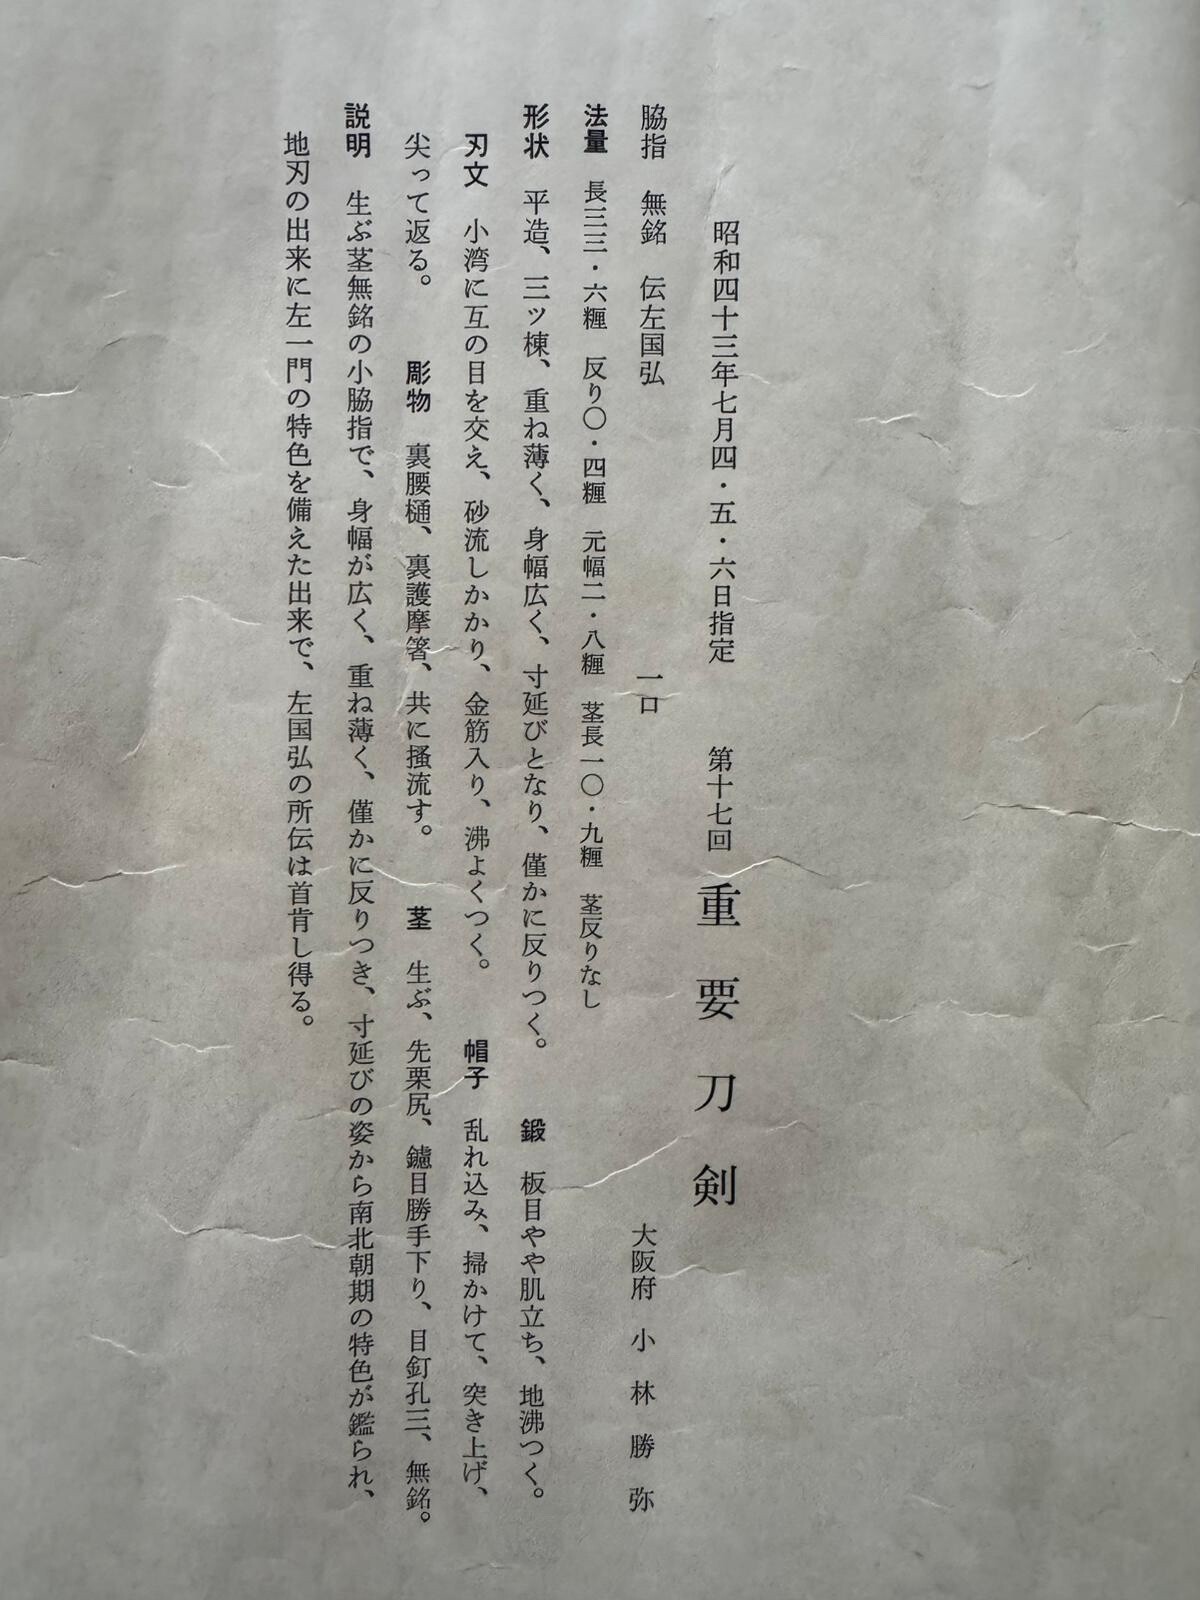 昭和四十三年七月四・五・六日指定　第十七回　重要刀剣
脇指　無銘　伝左国弘　一口　大阪府　小林勝弥
法量　長三三・六糎　反り〇・四糎　元幅二・八糎　茎長一〇・九糎　茎反りなし
形状　平造、三ツ棟、重ね薄く、身幅広く、寸延びとなり、僅かに反りつく。　鍛　板目やや肌立ち、地沸つく。
刃文　小湾に互の目を交え、砂流しかかり、金筋入り、沸よくつく。　帽子　乱れ込み、掃かけて、突き上げ、
尖って返る。　彫物　裏腰樋、裏護摩箸、共に掻流す。　茎　生ぶ、先栗尻、鑢目勝手下り、目釘孔三、無銘。
説明　生ぶ茎無銘の小脇指で、身幅が広く、重ね薄く、僅かに反りつき、寸延びの姿から南北朝期の特色が鑑られ、
地刃の出来に左一門の特色を備えた出来で、左国弘の所伝は首肯し得る。